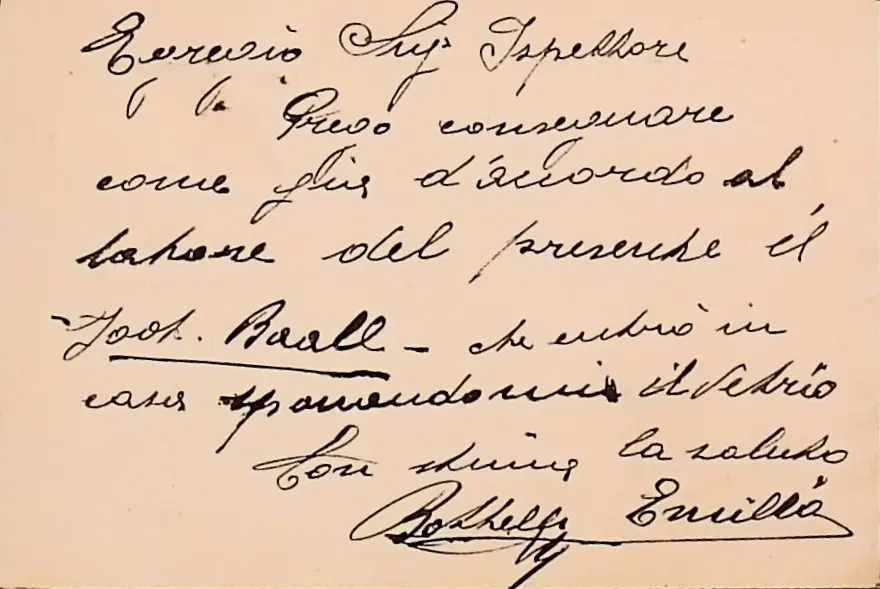 Egregio Sig. Ispettore
Prego consegnare
come già d'accordo al
latore del presente il
Foot. Baall - che entrò in
casa spaccandomi il vetrio
Con stima la saluto
Emilia